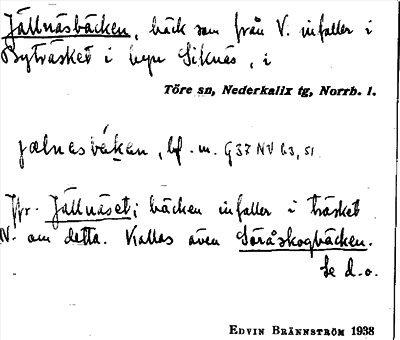 Jällnäsbäcken, bäck som från V. infaller i
Byträsket i byn Siknäs, i
Töre sn, Nederkalix tg, Norrb. l.
jælnasbäkan, bf. m. G37 NV b3, s1
Jfr. Jällnäset; bäcken infaller i träsket
N. om detta. Kallas även Söråskogbäcken.
Se d.o.
EDVIN BRÄNNSTRÖM 1938